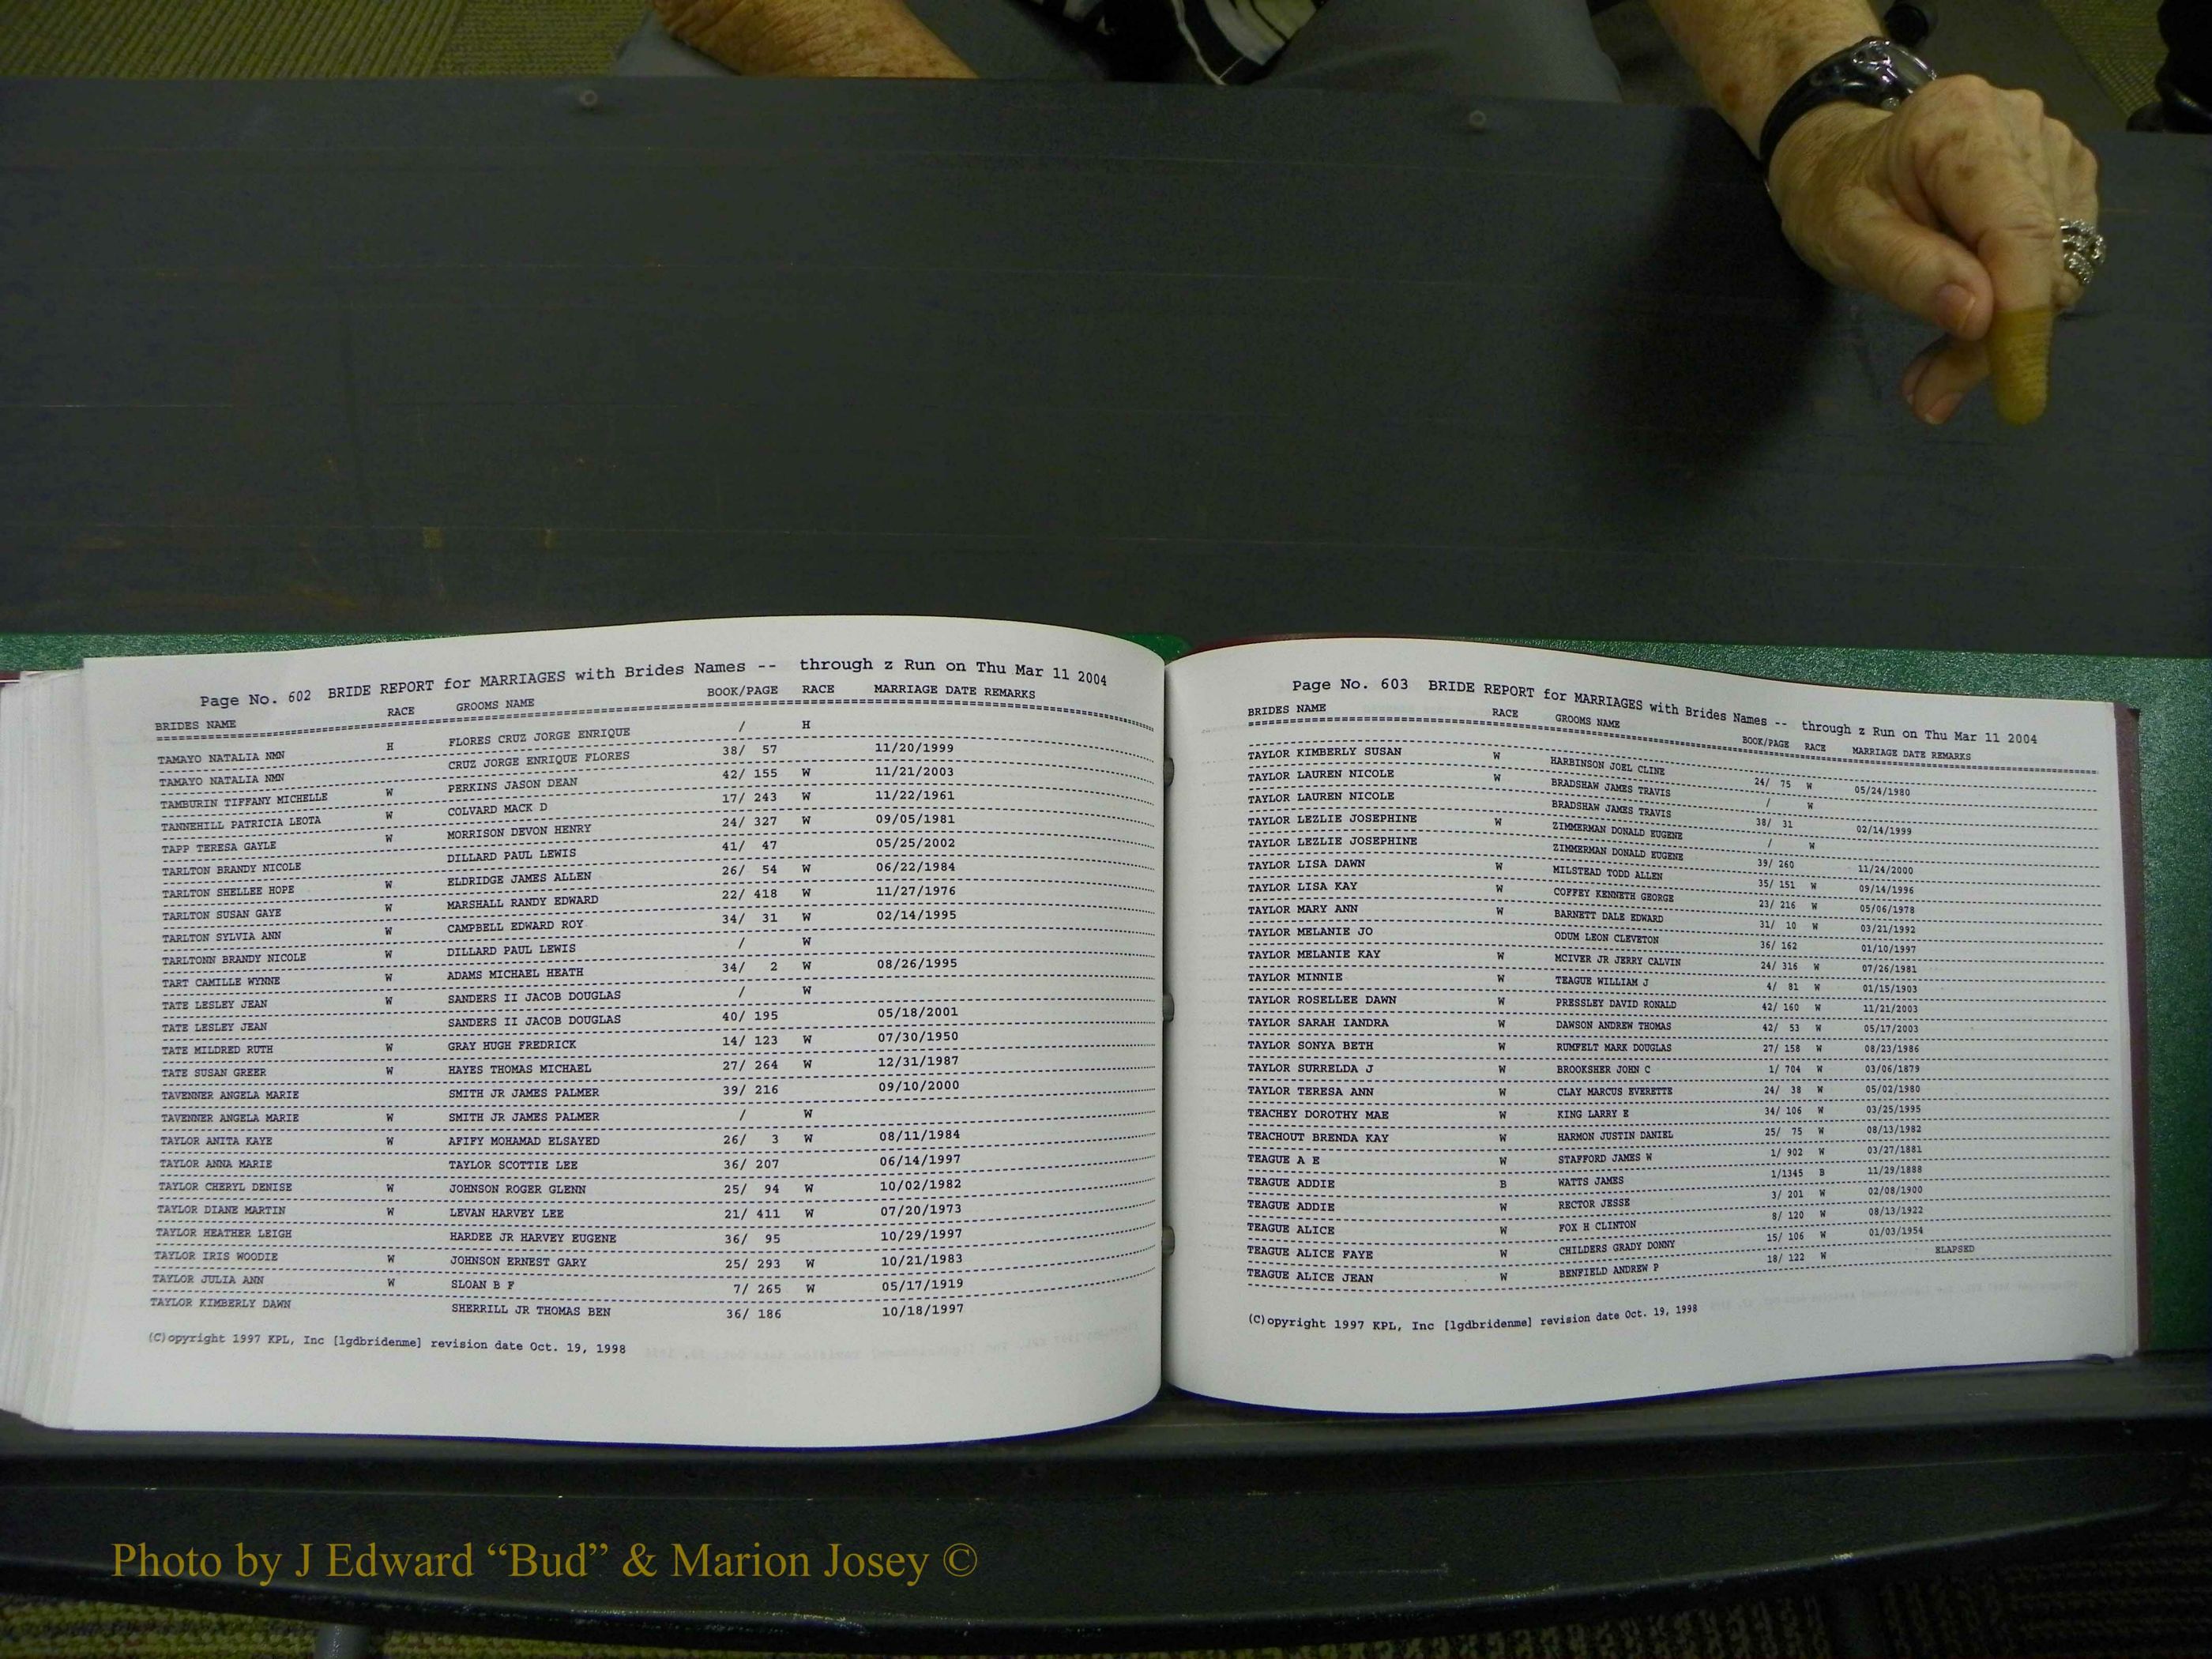 Page No. 602 BRIDE REPORT for MARRIAGES with Brides Names -- through z Run on Thu Mar 11 2004
BRIDES NAME RACE GROOMS NAME BOOK/PAGE RACE MARRIAGE DATE REMARKS
TAMAYO NATALIA NMN H FLORES CRUZ JORGE ENRIQUE / H
TAMAYO NATALIA NMN CRUZ JORGE ENRIQUE FLORES 38/ 57 11/20/1999
TAMBURIN TIFFANY MICHELLE W PERKINS JASON DEAN 42/ 155 W 11/21/2003
TANNEHILL PATRICIA LEOTA W COLVARD MACK D 17/ 243 W 11/22/1961
TAPP TERESA GAYLE W MORRISON DEVON HENRY 24/ 327 W 09/05/1981
TARLTON BRANDY NICOLE DILLARD PAUL LEWIS 41/ 47 05/25/2002
TARLTON SHELLEE HOPE W ELDRIDGE JAMES ALLEN 26/ 54 W 06/22/1984
TARLTON SUSAN GAYE W MARSHALL RANDY EDWARD 22/ 418 W 11/27/1976
TARLTON SYLVIA ANN W CAMPBELL EDWARD ROY 34/ 31 W 02/14/1995
TARLTONN BRANDY NICOLE W DILLARD PAUL LEWIS / W
TART CAMILLE WYNNE W ADAMS MICHAEL HEATH 34/ 2 W 08/26/1995
TATE LESLEY JEAN W SANDERS II JACOB DOUGLAS / W
TATE LESLEY JEAN SANDERS II JACOB DOUGLAS 40/ 195 05/18/2001
TATE MILDRED RUTH W GRAY HUGH FREDRICK 14/ 123 W 07/30/1950
TATE SUSAN GREER W HAYES THOMAS MICHAEL 27/ 264 W 12/31/1987
TAVENNER ANGELA MARIE SMITH JR JAMES PALMER 39/ 216 09/10/2000
TAVENNER ANGELA MARIE W SMITH JR JAMES PALMER / W
TAYLOR ANITA KAYE W AFIFY MOHAMAD ELSAYED 26/ 3 W 08/11/1984
TAYLOR ANNA MARIE TAYLOR SCOTTIE LEE 36/ 207 06/14/1997
TAYLOR CHERYL DENISE W JOHNSON ROGER GLENN 25/ 94 W 10/02/1982
TAYLOR DIANE MARTIN W LEVAN HARVEY LEE 21/ 411 W 07/20/1973
TAYLOR HEATHER LEIGH HARDEE JR HARVEY EUGENE 36/ 95 10/29/1997
TAYLOR IRIS WOODIE W JOHNSON ERNEST GARY 25/ 293 W 10/21/1983
TAYLOR JULIA ANN W SLOAN B F 7/ 265 W 05/17/1919
TAYLOR KIMBERLY DAWN SHERRILL JR THOMAS BEN 36/ 186 10/18/1997
(C)opyright 1997 KPL, Inc [lgdbridenme] revision date Oct. 19, 1998
Page No. 603 BRIDE REPORT for MARRIAGES with Brides Names -- through z Run on Thu Mar 11 2004
BRIDES NAME RACE GROOMS NAME BOOK/PAGE RACE MARRIAGE DATE REMARKS
TAYLOR KIMBERLY SUSAN W HARBINSON JOEL CLINE 24/ 75 W 05/24/1980
TAYLOR LAUREN NICOLE W BRADSHAW JAMES TRAVIS / W
TAYLOR LAUREN NICOLE BRADSHAW JAMES TRAVIS 38/ 31 02/14/1999
TAYLOR LEZLIE JOSEPHINE W ZIMMERMAN DONALD EUGENE / W
TAYLOR LEZLIE JOSEPHINE ZIMMERMAN DONALD EUGENE 39/ 260 11/24/2000
TAYLOR LISA DAWN W MILSTEAD TODD ALLEN 35/ 151 W 09/14/1996
TAYLOR LISA KAY W COFFEY KENNETH GEORGE 23/ 216 W 05/06/1978
TAYLOR MARY ANN W BARNETT DALE EDWARD 31/ 10 W 03/21/1992
TAYLOR MELANIE JO ODUM LEON CLEVETON 36/ 162 01/10/1997
TAYLOR MELANIE KAY W MCIVER JR JERRY CALVIN 24/ 316 W 07/26/1981
TAYLOR MINNIE W TEAGUE WILLIAM J 4/ 81 W 01/15/1903
TAYLOR ROSELLEE DAWN W PRESSLEY DAVID RONALD 42/ 160 W 11/21/2003
TAYLOR SARAH IANDRA W DAWSON ANDREW THOMAS 42/ 53 W 05/17/2003
TAYLOR SONYA BETH W RUMFELT MARK DOUGLAS 27/ 158 W 08/23/1986
TAYLOR SURRELDA J W BROOKSHER JOHN C 1/ 704 W 03/06/1879
TAYLOR TERESA ANN W CLAY MARCUS EVERETTE 24/ 38 W 05/02/1980
TEACHEY DOROTHY MAE W KING LARRY E 34/ 106 W 03/25/1995
TEACHOUT BRENDA KAY W HARMON JUSTIN DANIEL 25/ 75 W 08/13/1982
TEAGUE A E W STAFFORD JAMES W 1/ 902 W 03/27/1881
TEAGUE ADDIE B WATTS JAMES 1/1345 B 11/29/1888
TEAGUE ADDIE W RECTOR JESSE 3/ 201 W 02/08/1900
TEAGUE ALICE W FOX H CLINTON 8/ 120 W 08/13/1922
TEAGUE ALICE FAYE W CHILDERS GRADY DONNY 15/ 106 W 01/03/1954
TEAGUE ALICE JEAN W BENFIELD ANDREW P 18/ 122 W ELAPSED
(C)opyright 1997 KPL, Inc [lgdbridenme] revision date Oct. 19, 1998
Photo by J Edward “Bud” & Marion Josey ©